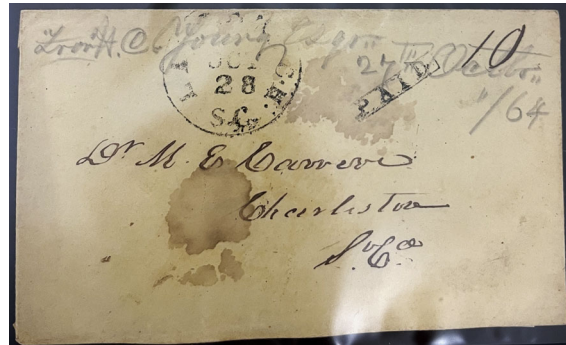 From H. C. Young Esqr
27th October
/64
L C.H.
OCT
28
S.C.
PAID
10
Dr M. E. Carrere
Charleston
So Ca